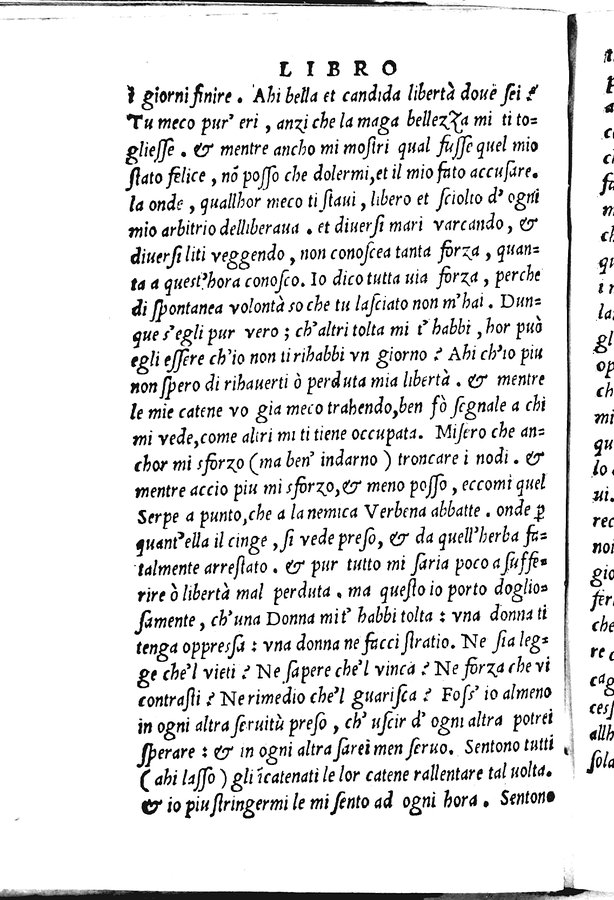 LIBRO
i giorni finire. Ahi bella et candida libertà doue sei?
Tu meco pur' eri, anzi che la maga bellezza mi ti to=
gliesse. & mentre ancho mi mostri qual fusse quel mio
stato felice, nõ posso che dolermi, et il mio fato accusare.
la onde, quallhor meco ti staui, libero et sciolto d'ogni
mio arbitrio delliberaua. et diuersi mari varcando, &
diuersi liti veggendo, non conoscea tanta forza, quan=
ta a quest'hora conosco. Io dico tutta uia forza, perche
di spontanea volontà so che tu lasciato non m'hai. Dun=
que s'egli pur vero; ch'altri tolta mi t'habbi, hor può
egli essere ch'io non ti rihabbi vn giorno? Ahi ch'io piu
non spero di rihauerti ò perduta mia libertà. & mentre
le mie catene vo gia meco trahendo, ben fò segnale a chi
mi vede, come altri mi ti tiene occupata. Misero che an=
chor mi sforzo (ma ben' indarno) troncare i nodi. &
mentre accio piu mi sforzo, & meno posso, eccomi quel
Serpe a punto, che a la nemica Verbena abbatte. onde ꝑ
quant'ella il cinge, si vede preso, & da quell'herba fa=
talmente arrestato. & pur tutto mi saria poco a suffe=
rire ò libertà mal perduta. ma questo io porto doglio=
samente, ch'una Donna mi t'habbi tolta: vna donna ti
tenga oppressa: vna donna ne facci stratio. Ne sia leg=
ge che'l vieti? Ne sapere che'l vinca? Ne forza che vi
contrasti? Ne rimedio che'l guarisca? Foss' io almeno
in ogni altra seruitù preso, ch'uscir d'ogni altra potrei
sperare: & in ogni altra sarei men seruo. Sentono tutti
(ahi lasso) gli ĩcatenati le lor catene rallentare tal uolta.
& io piu stringermi le mi sento ad ogni hora. Sentono